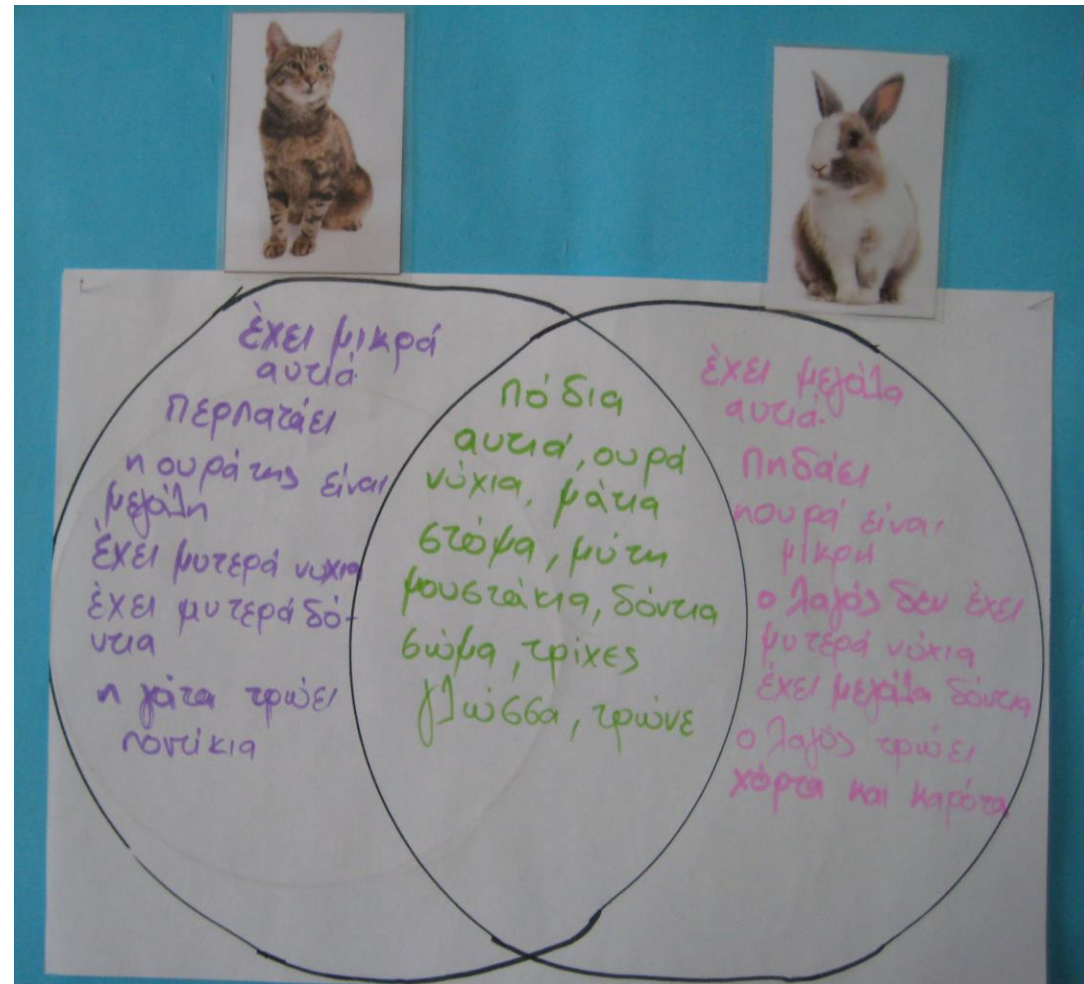 έχει μικρά
αυτιά.
Περπατάει
η ουρά της είναι
μεγάλη
έχει μυτερά νυχια
έχει μυτερά δό-
ντια
η γάτα τρώει
ποντίκια
Πόδια
αυτιά, ουρά
νύχια, μάτια
στόμα, μύτη
μουστάκια, δόντια
σώμα, τρίχες
γλώσσα, τρώνε
έχει μεγάλα
αυτιά.
Πηδάει
η ουρά είναι
μικρή
ο λαγός δεν έχει
μυτερά νύχια
έχει μεγάλα δόντια
ο λαγός τρώει
χόρτα και καρότα